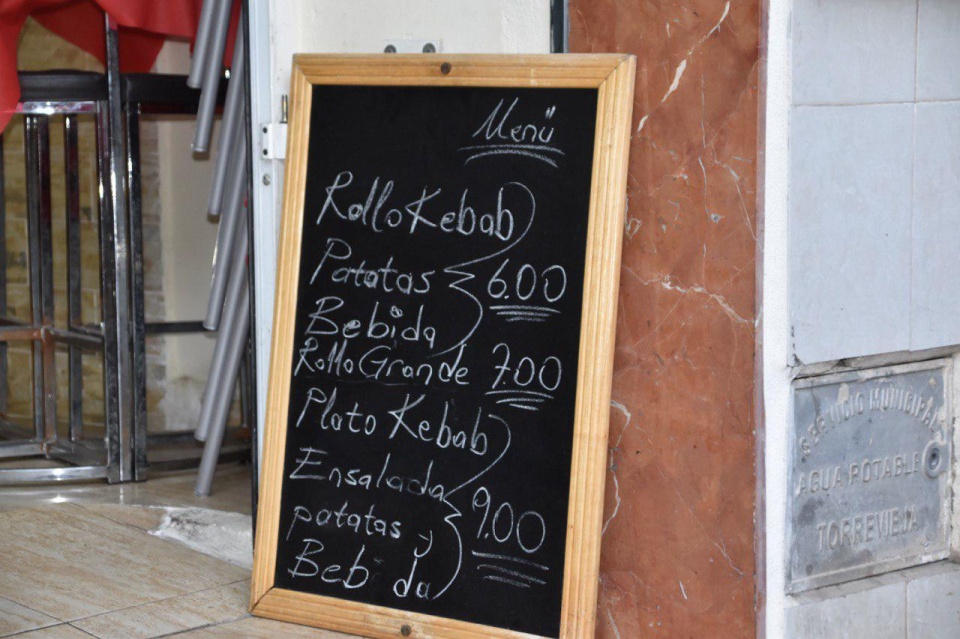 Menü
Rollo Kebab
Patatas 6.00
Bebida
Rollo Grande 7.00
Plato Kebab
Ensalada
patatas y 9.00
Bebida
SERVICIO MUNICIPAL
AGUA POTABLE
TORREVIEJA